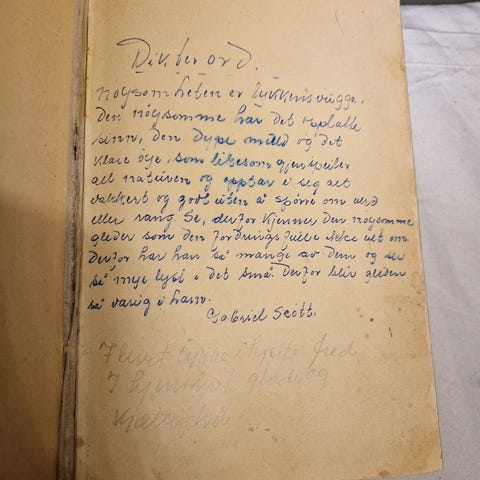 Dikter ord.
nøysomheten er lykkens vugge,
Den nøysomme har det oplatte
sinn, den dype milld og det
klare øye, som likesom gjenspeiler
alt naturen og opptar i seg alt
vakkert og godt uten å spörre om verd
eller rang Se, derfor kjenner den nøysomme
gleder som den fordringsfulle ikke vet om
Derfor har han så mange av dem og ser
så mye lyst i det små. Derfor blir gleden
så varig i ham.
Gabriel Scott.
I livet lykke i hjerte fred
I hjemmet glede og
kjærlighed